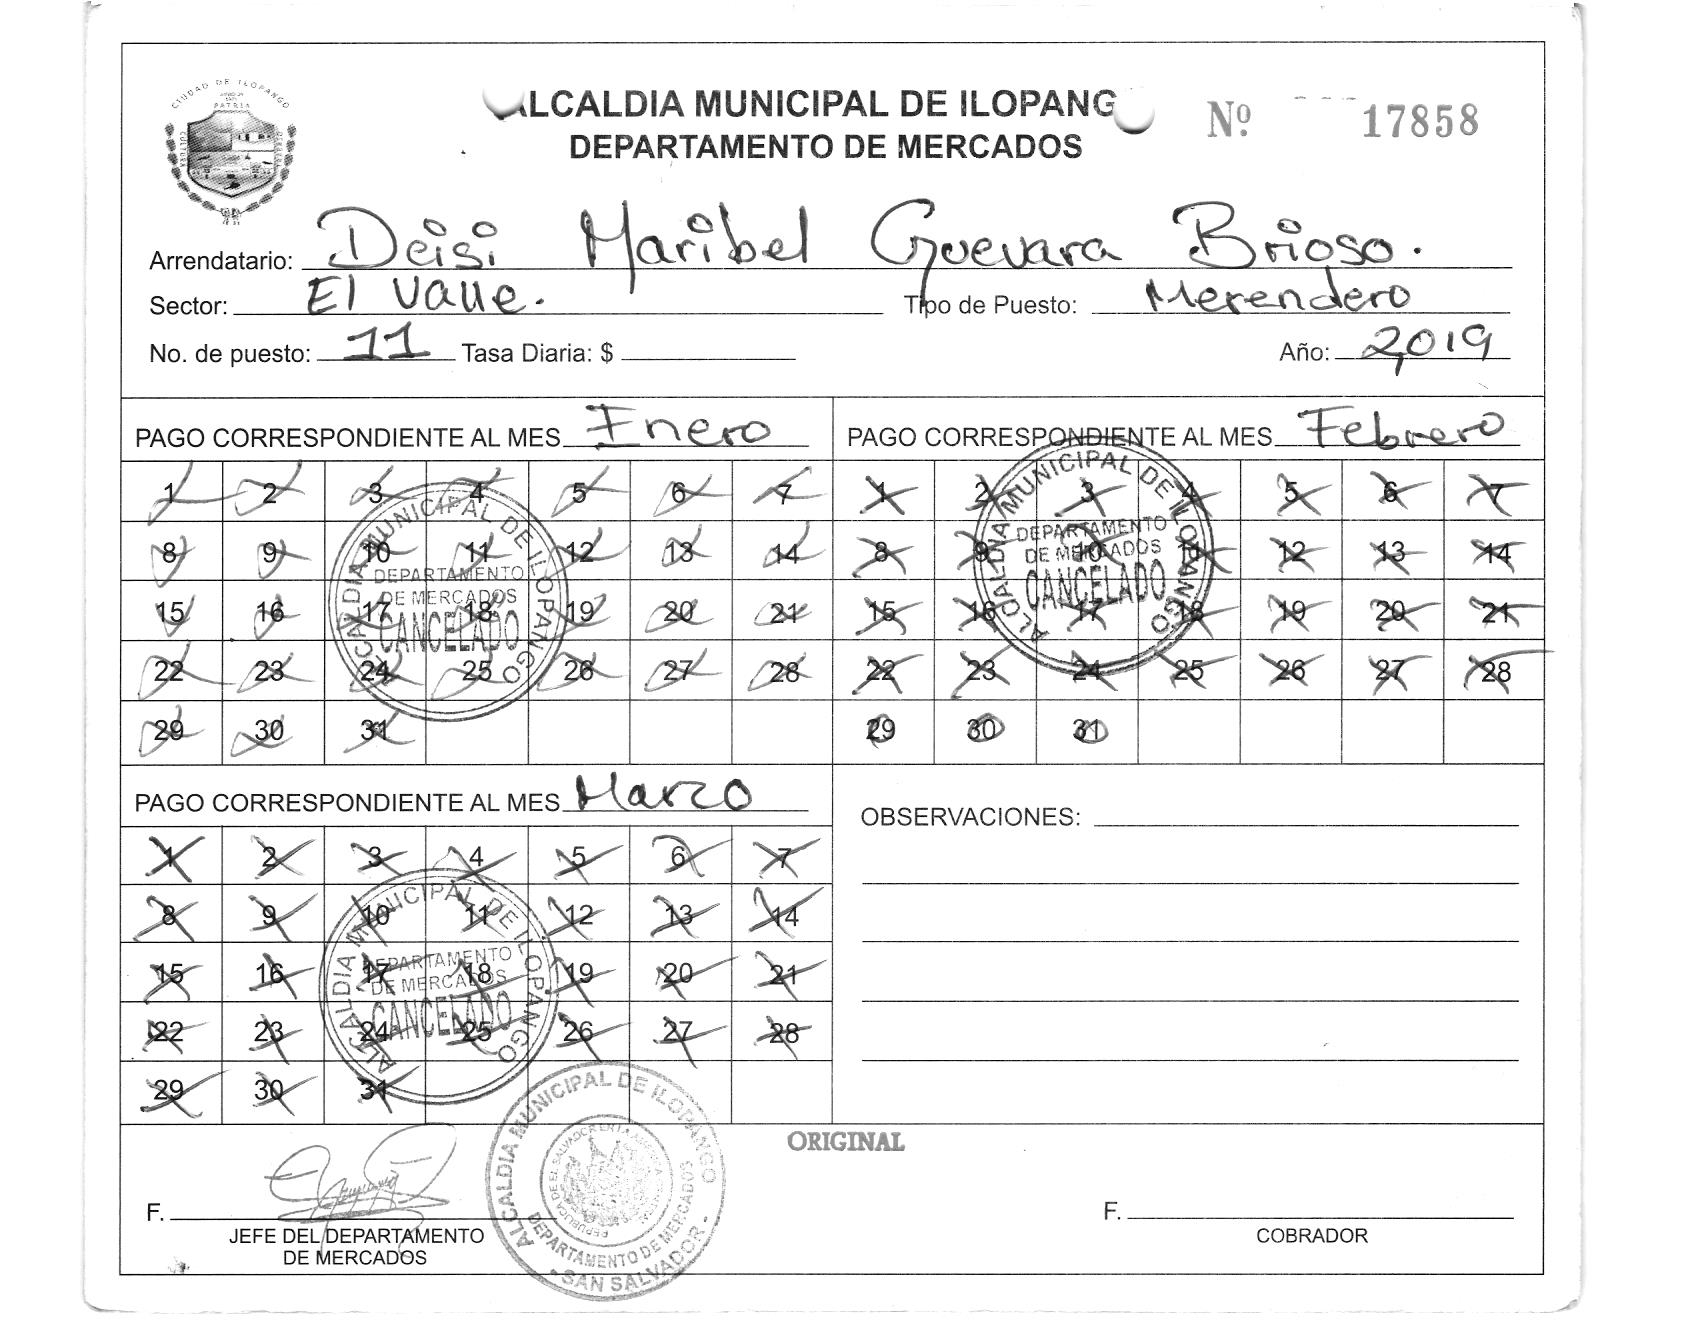 CIUDAD DE ILOPANGO
PATRIA
CULTURA
ALCALDIA MUNICIPAL DE ILOPANG
DEPARTAMENTO DE MERCADOS
Nº 17858
Arrendatario: Deisi Maribel Guevara Brioso.
Sector: El Valle. Tipo de Puesto: Merendero
No. de puesto: 11 Tasa Diaria: $ Año: 2019
PAGO CORRESPONDIENTE AL MES Enero
1 2 3 4 5 6 7
8 9 10 11 12 13 14
15 16 17 18 19 20 21
22 23 24 25 26 27 28
29 30 31
ALCALDIA MUNICIPAL DE ILOPANGO
DEPARTAMENTO
DE MERCADOS
CANCELADO
PAGO CORRESPONDIENTE AL MES Febrero
1 2 3 4 5 6 7
8 9 10 11 12 13 14
15 16 17 18 19 20 21
22 23 24 25 26 27 28
29 30 31
ALCALDIA MUNICIPAL DE ILOPANGO
DEPARTAMENTO
DE MERCADOS
CANCELADO
PAGO CORRESPONDIENTE AL MES Marzo
1 2 3 4 5 6 7
8 9 10 11 12 13 14
15 16 17 18 19 20 21
22 23 24 25 26 27 28
29 30 31
ALCALDIA MUNICIPAL DE ILOPANGO
DEPARTAMENTO
DE MERCADOS
CANCELADO
OBSERVACIONES:
ORIGINAL
F.
JEFE DEL DEPARTAMENTO
DE MERCADOS
ALCALDIA MUNICIPAL DE ILOPANGO
DEPARTAMENTO DE MERCADOS
SAN SALVADOR
F.
COBRADOR